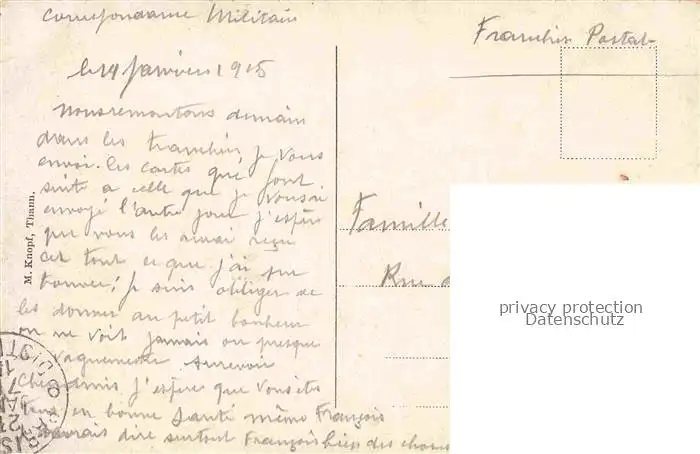 Correspondance Militair
Franchise Postal
le 14 Janvier 1915
Nous remontons demain
dans les tranchées, je vous
envoi les cartes que font
suite a celle que je vous ai
envoyé l'autre jour j'espère
que vous les aurai reçu
cet tout ce que j'ai pu
trouver; je suis obliger de
les donner au petit bonheur
on ne voit jamais ou presque
Vaguemestre Aurevoir
Chers amis j'espère que vous ites
tous en bonne Santé même François
dire surtout François bien des choses
Famille
Rue
M. Knopf, Thann.
privacy protection
Datenschutz